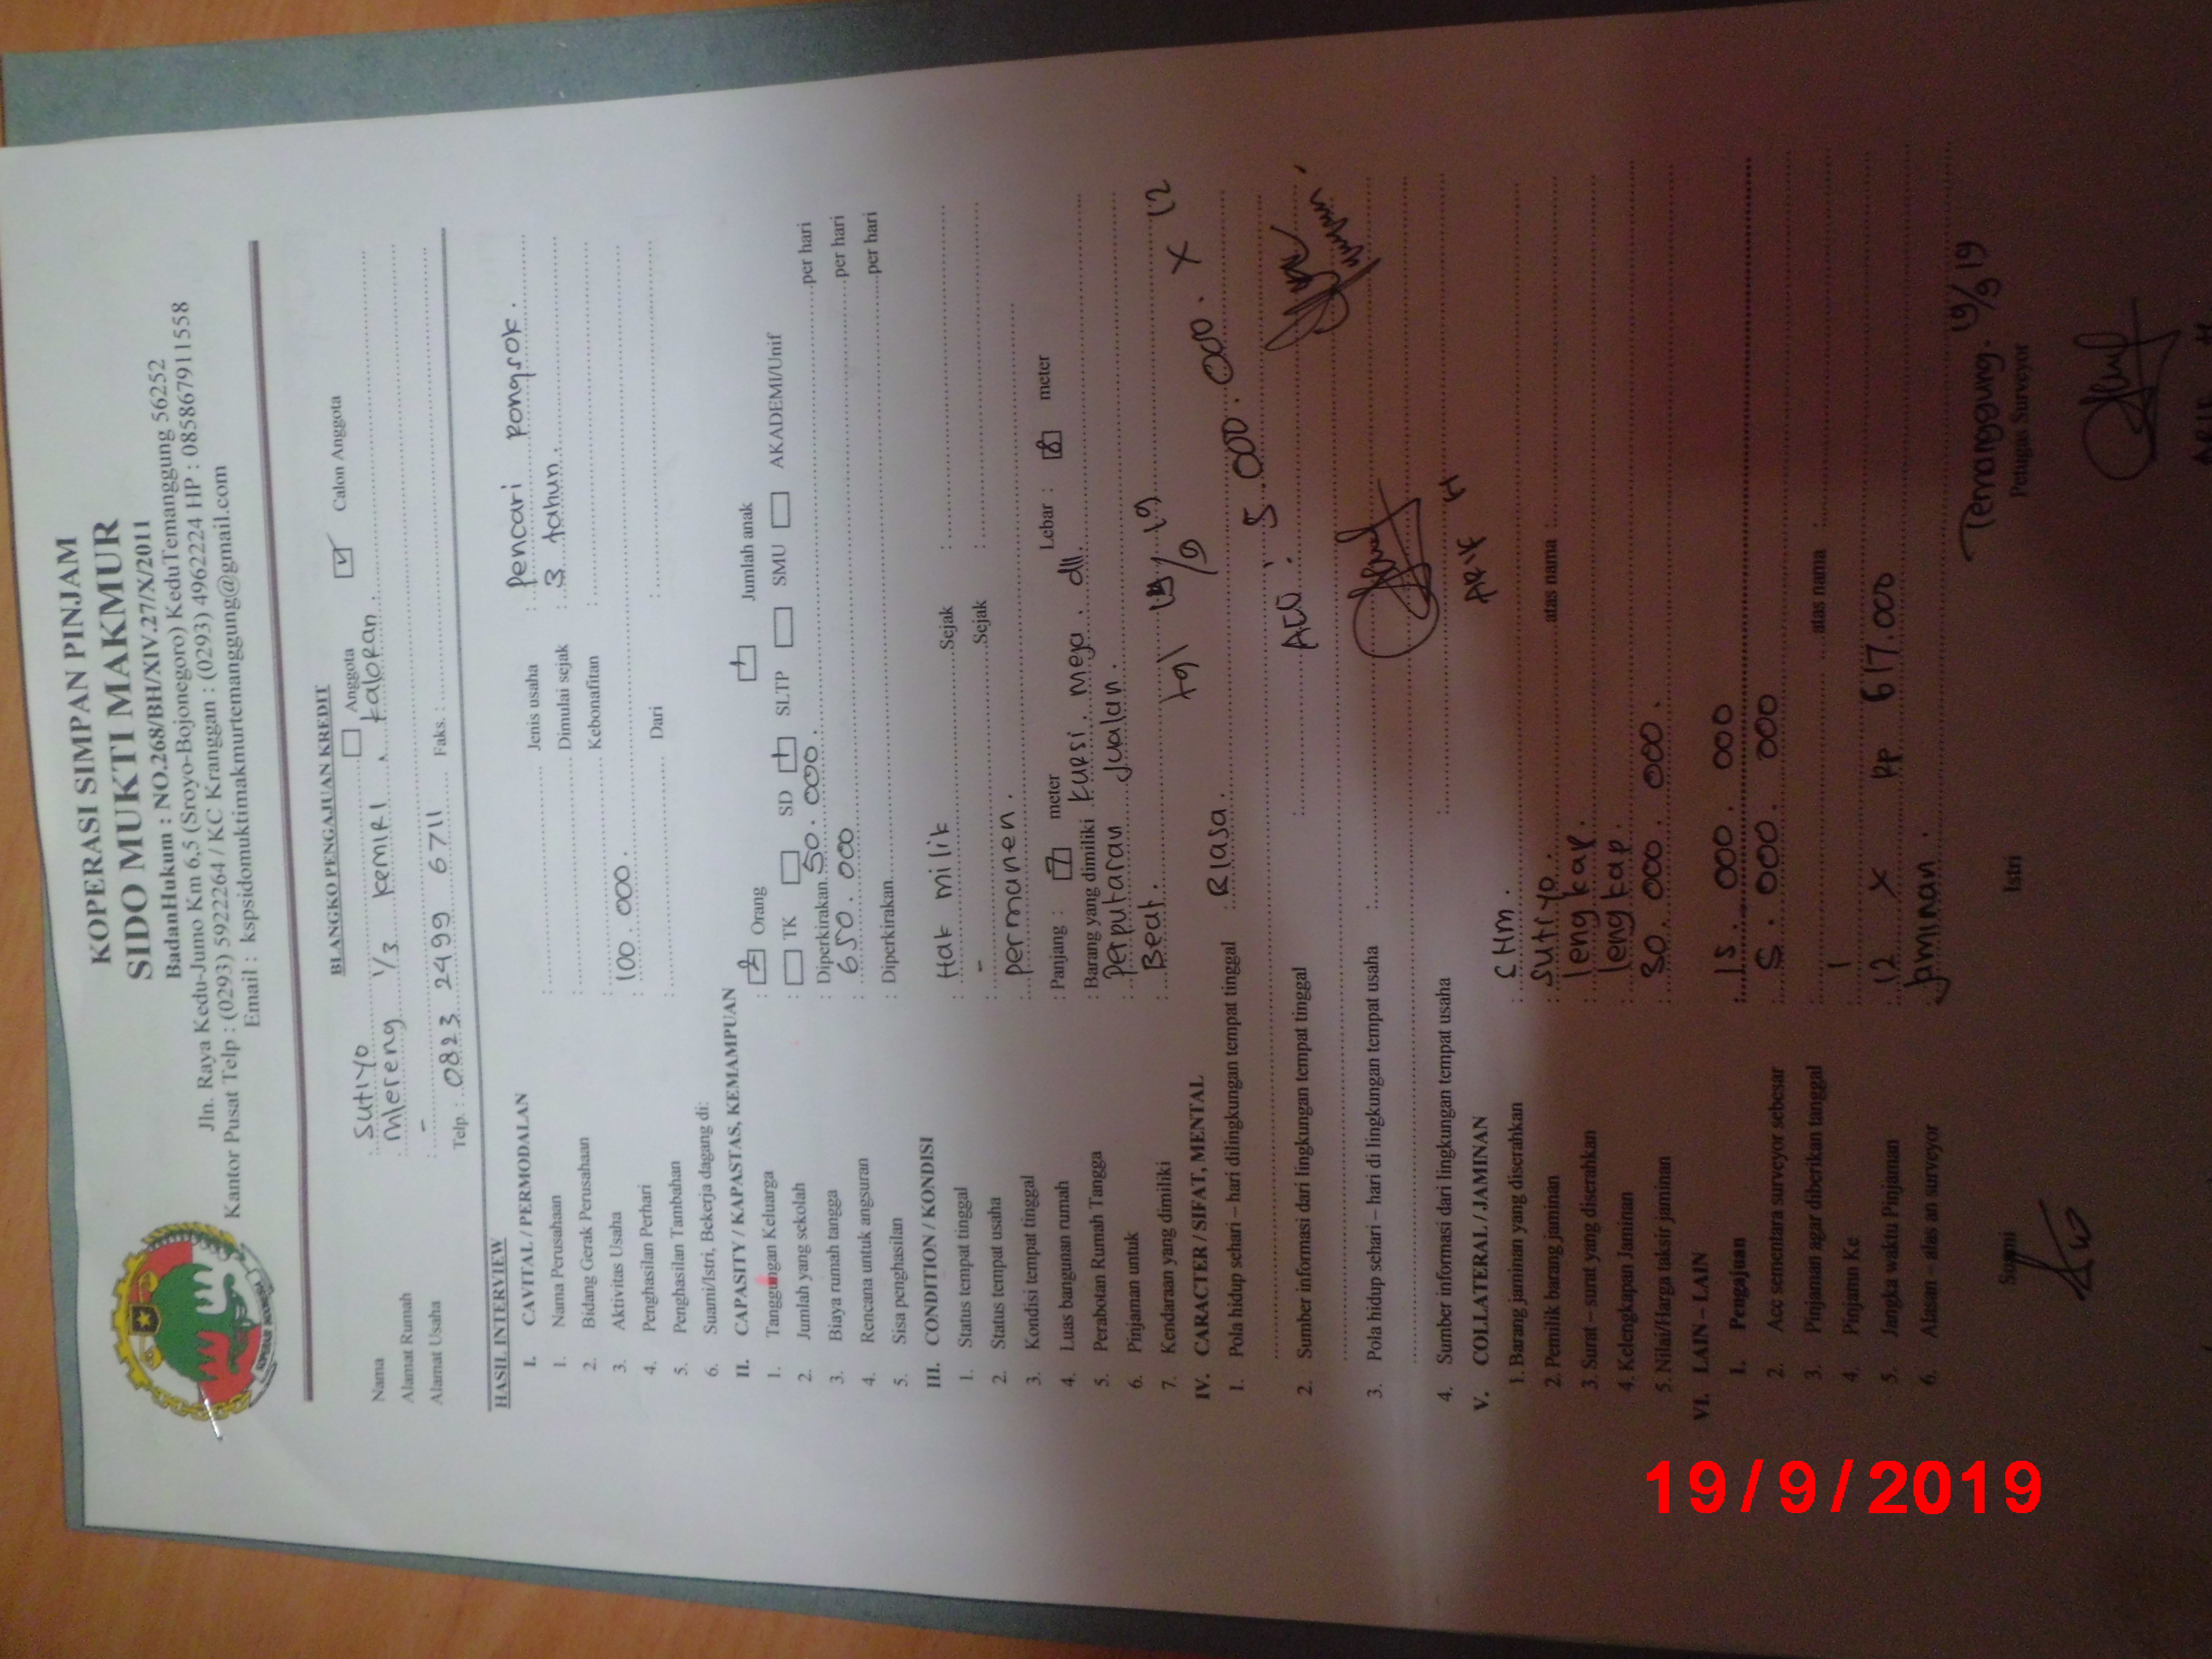 KOPERASI SIMPAN PINJAM
SIDO MUKTI MAKMUR
BadanHukum : NO.268/BH/XIV.27/X/2011
Jln. Raya Kedu-Jumo Km 6,5 (Sroyo-Bojonegoro) KeduTemanggung 56252
Kantor Pusat Telp : (0293) 5922264 / KC Kranggan : (0293) 4962224 HP : 085867911558
Email : kspsidomuktimakmurtemanggung@gmail.com
KOPERASI INDONESIA
BLANGKO PENGAJUAN KREDIT
Anggota Calon Anggota
Nama : Sutiyo
Alamat Rumah : Mlereng 1/3 Kemiri, Kaloran.
Alamat Usaha : -
Telp. : 0823 2499 6711 Faks. :
HASIL INTERVIEW
I. CAVITAL / PERMODALAN
1. Nama Perusahaan : Jenis usaha : Pencari rongsok.
2. Bidang Gerak Perusahaan : Dimulai sejak : 3 tahun.
3. Aktivitas Usaha : Kebonafitan :
4. Penghasilan Perhari : 100.000.
5. Penghasilan Tambahan : Dari :
6. Suami/Istri, Bekerja dagang di:
II. CAPASITY / KAPASTAS, KEMAMPUAN
1. Tanggungan Keluarga : Orang Jumlah anak
2. Jumlah yang sekolah : TK SD SLTP SMU AKADEMI/Unif
3. Biaya rumah tangga : Diperkirakan 50.000. per hari
4. Rencana untuk angsuran : 650.000 per hari
5. Sisa penghasilan : Diperkirakan per hari
III. CONDITION / KONDISI
1. Status tempat tinggal : Hak milik Sejak :
2. Status tempat usaha : - Sejak :
3. Kondisi tempat tinggal : permanen.
4. Luas bangunan rumah : Panjang : 7 meter Lebar : 8 meter
5. Perabotan Rumah Tangga : Barang yang dimiliki kursi. meja. dll.
6. Pinjaman untuk : Perputaran Jualan.
7. Kendaraan yang dimiliki : Beat.
tgl 19/9 19
IV. CARACTER / SIFAT, MENTAL
1. Pola hidup sehari – hari dilingkungan tempat tinggal : Biasa.
ACC. 5.000.000. x 12
2. Sumber informasi dari lingkungan tempat tinggal :
3. Pola hidup sehari – hari di lingkungan tempat usaha :
4. Sumber informasi dari lingkungan tempat usaha :
ARIF H
V. COLLATERAL / JAMINAN
1. Barang jaminan yang diserahkan : SHM.
2. Pemilik barang jaminan : Sutiyo. atas nama :
3. Surat – surat yang diserahkan : lengkap.
4. Kelengkapan Jaminan : lengkap.
5. Nilai/Harga taksir jaminan : 30.000.000.
VI. LAIN – LAIN
1. Pengajuan : 15.000.000
2. Acc sementara surveyor sebesar : 5.000.000
3. Pinjaman agar diberikan tanggal : atas nama :
4. Pinjamn Ke : 1
5. Jangka waktu Pinjaman : 12 x Rp 617.000
6. Alasan – alas an surveyor : Jaminan.
Temanggung. 19/9 19
Suami Istri Petugas Surveyor
19/9/2019